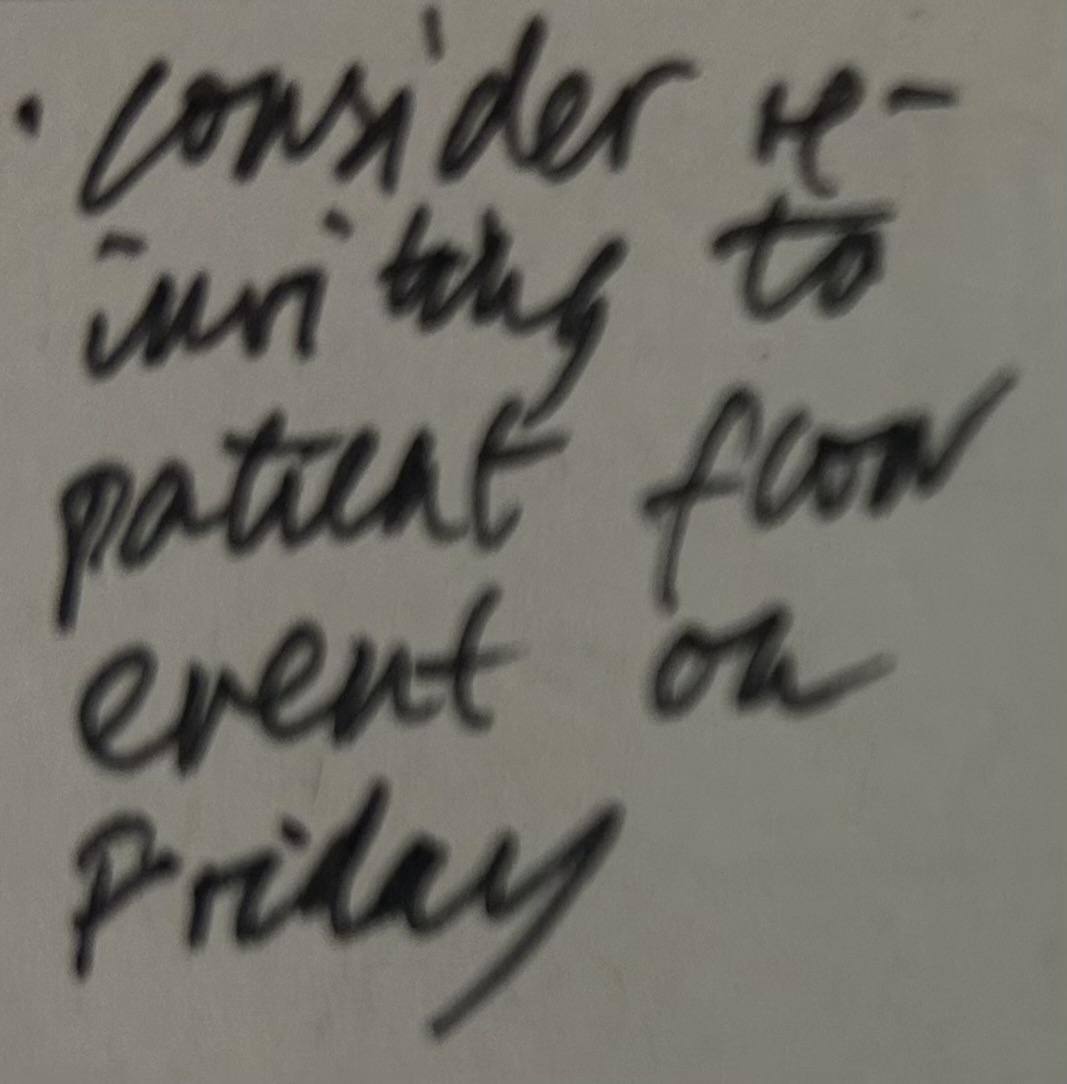 · consider re-
inviting to
patient flow
event on
Friday